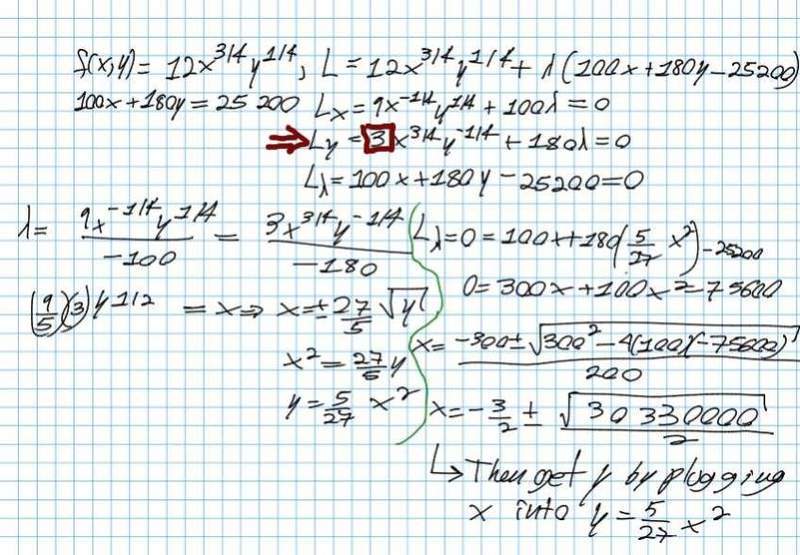 f(x,y) = 12x^3/4 y^1/4, L = 12x^3/4 y^1/4 + λ(100x+180y-25200)
100x+180y = 25 200 Lx = 9x^-1/4 y^1/4 + 100λ = 0
⇒ Ly = 3x^3/4 y^-1/4 + 180λ = 0
Lλ = 100x+180y-25200=0
λ = 9x^-1/4 y^1/4 / -100 = 3x^3/4 y^-1/4 / -180
(9/5)(3) y^1/2 = x ⇒ x = ± 27/5 √y
x^2 = 27/5 y
y = 5/27 x^2
Lλ=0 = 100x+180(5/27 x^2) -25200
0 = 300x+100x^2=75600
x = -300 ± √(300^2-4(100)(-75600)) / 200
x = -3/2 ± √30 330000 / 2
↳ Then get y by plogging
x into y = 5/27 x^2